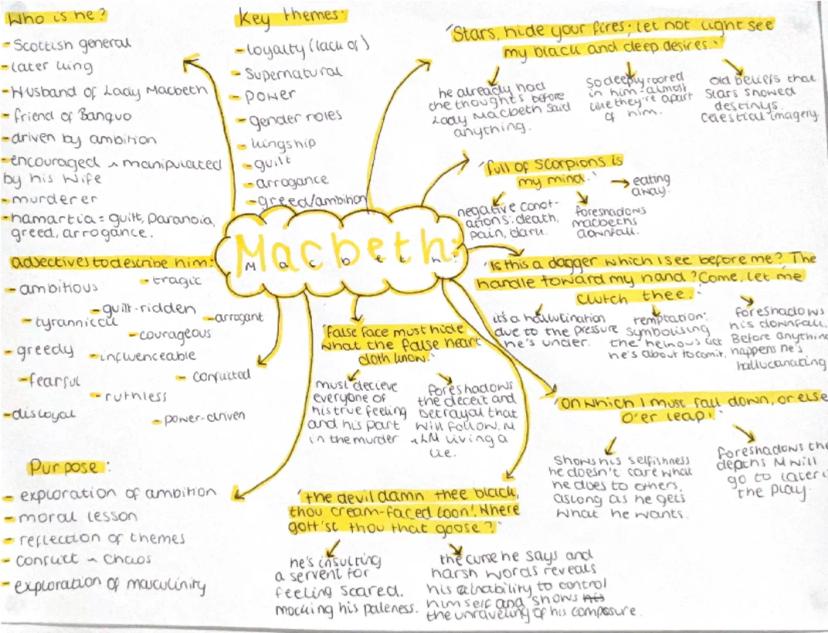 Who is he?
- Scottish general
- later king
- Husband of Lady Macbeth
- friend of Banquo
- driven by ambition
- encouraged & manipulated
by his wife
- murderer
- hamartia = guilt, paranoia,
greed, arrogance.
Key themes:
- loyalty (lack of)
- supernatural
- power
- gender roles
- kingship
- guilt
- arrogance
- greed/ambition
'Stars, hide your fires; let not light see
my black and deep desires.'
he already had
the thoughts before
Lady Macbeth said
anything.
so deeply rooted
in him - almost
like they're apart
of him.
old beliefs that
stars showed
destinys.
Celestial imagery.
'full of scorpions is
my mind.'
eating
away.
negative conot-
ations: death,
pain, dark.
foreshadows
macbeths
downfall.
Macbeth:
Macbeth
adjectives to describe him:
- ambitious
- tragic
- guilt-ridden
- tyrannical
- arrogant
- courageous
- greedy
- influenceable
- fearful
- conflicted
- ruthless
- disloyal
- power-driven
'Is this a dagger which I see before me? The
handle toward my hand? Come, let me
clutch thee.'
it's a hallucination
due to the pressure
he's under.
temptation:
symbolising
the heinous act
he's about to comit.
foreshadows
his downfall.
Before anything
happens he's
hallucinating
'false face must hide
what the false heart
doth know.'
must decieve
everyone of
his true feeling
and his part
in the murder
foreshadows
the deceit and
betrayal that
will follow. M
+ LM living a
lie.
'On which I must fall down, or else
o'er leap;'
Shows his selfishness
he doesn't care what
he does to others,
aslong as he gets
what he wants.
foreshadows the
depths M will
go to later i
the play.
Purpose:
- exploration of ambition
- moral lesson
- reflection of themes
- conflict ~ chaos
- exploration of masculinity
'the devil damn thee black,
thou cream-faced loon! Where
gott'st thou that goose?'
he's insulting
a servent for
feeling scared.
mocking his paleness.
the curse he says and
harsh words reveals
his inability to control
himself and shows his
the unraveling of his composure.